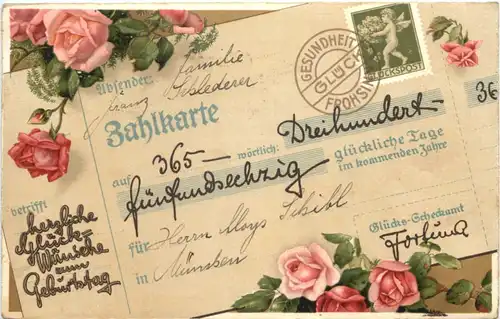 Absender:
Familie
Franz Schlederer
Zahlkarte
GESUNDHEIT
GLÜCK
FROHSINN
GLÜCKSPOST
auf 365— wörtlich: Dreihundert-
36
fünfundsechzig
glückliche Tage
im kommenden Jahre
betrifft
herzliche
Glück-
Wünsche
zum
Geburtstag
für Herrn Aloys Schibl
in München
Glücks-Scheckamt
Fortuna